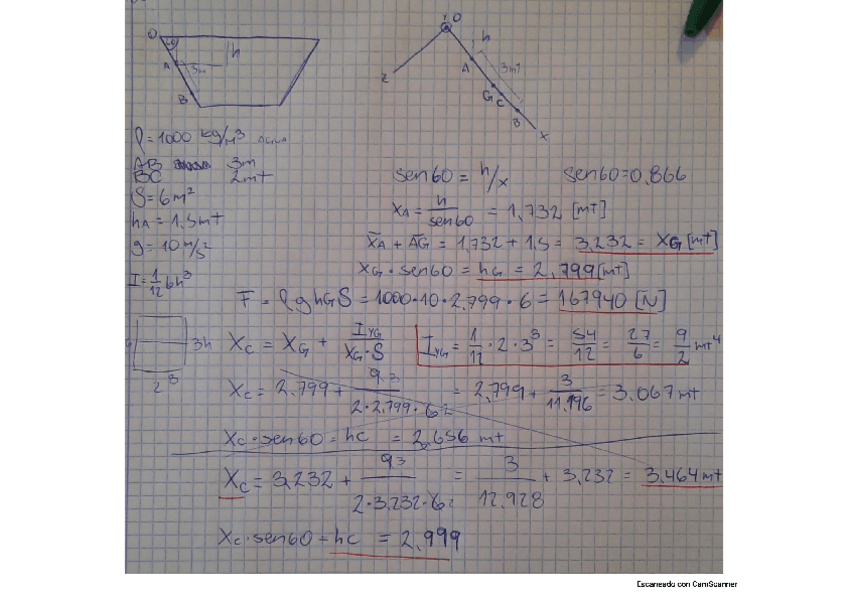 O
60
h
A
3m
B
O
h
A
3mt
G
C
B
Z
X
ρ = 1000 kg/m³ AGUA
AB 3m
BC 2mt
S = 6m²
hA = 1,5mt
g = 10 m/s²
I = 1/12 bh³
sen60 = h/x sen60 = 0,866
XA = h/sen60 = 1,732 [mt]
X̄A + ĀG = 1,732 + 1,5 = 3,232 = XG [mt]
XG · sen60 = hG = 2,799 [mt]
F = ρghGS = 1000·10·2,799·6 = 167940 [N]
3h
2 B
XC = XG + IYG/XG·S
IYG = 1/12 · 2 · 3³ = 54/12 = 27/6 = 9/2 mt⁴
XC = 2,799 + 9 3/2·2,799·6 2 = 2,799 + 3/11,196 = 3,067 mt
XC · sen60 = hc = 2,656 mt
XC = 3,232 + 9 3/2·3,232·6 2 = 3/12,928 + 3,232 = 3,464 mt
XC · sen60 = hc = 2,999
Escaneado con CamScanner